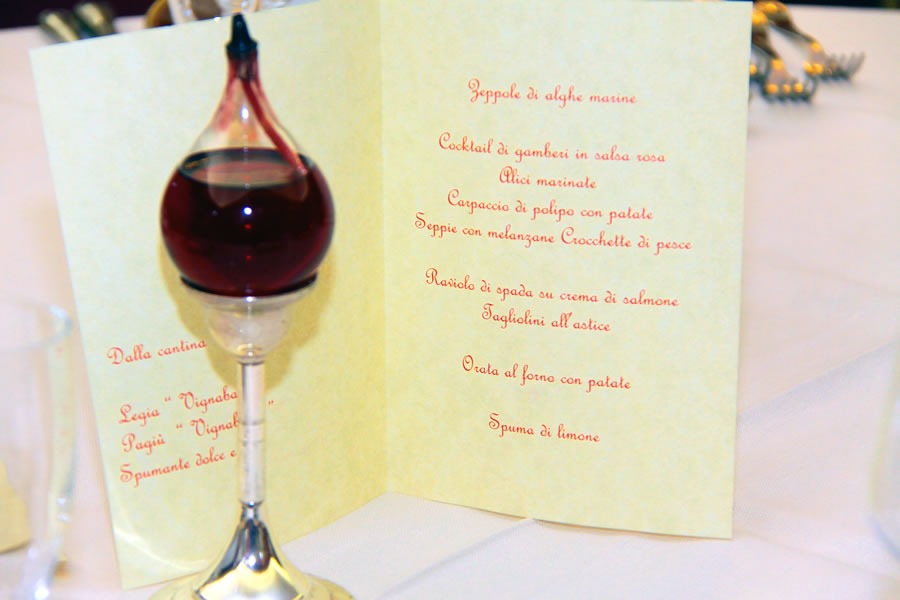 Dalla cantina
Legia “ Vignaba ”
Pagiù “ Vignab
Spumante dolce e
Zeppole di alghe marine
Cocktail di gamberi in salsa rosa
Alici marinate
Carpaccio di polipo con patate
Seppie con melanzane Crocchette di pesce
Raviolo di spada su crema di salmone
Tagliolini all'astice
Orata al forno con patate
Spuma di limone